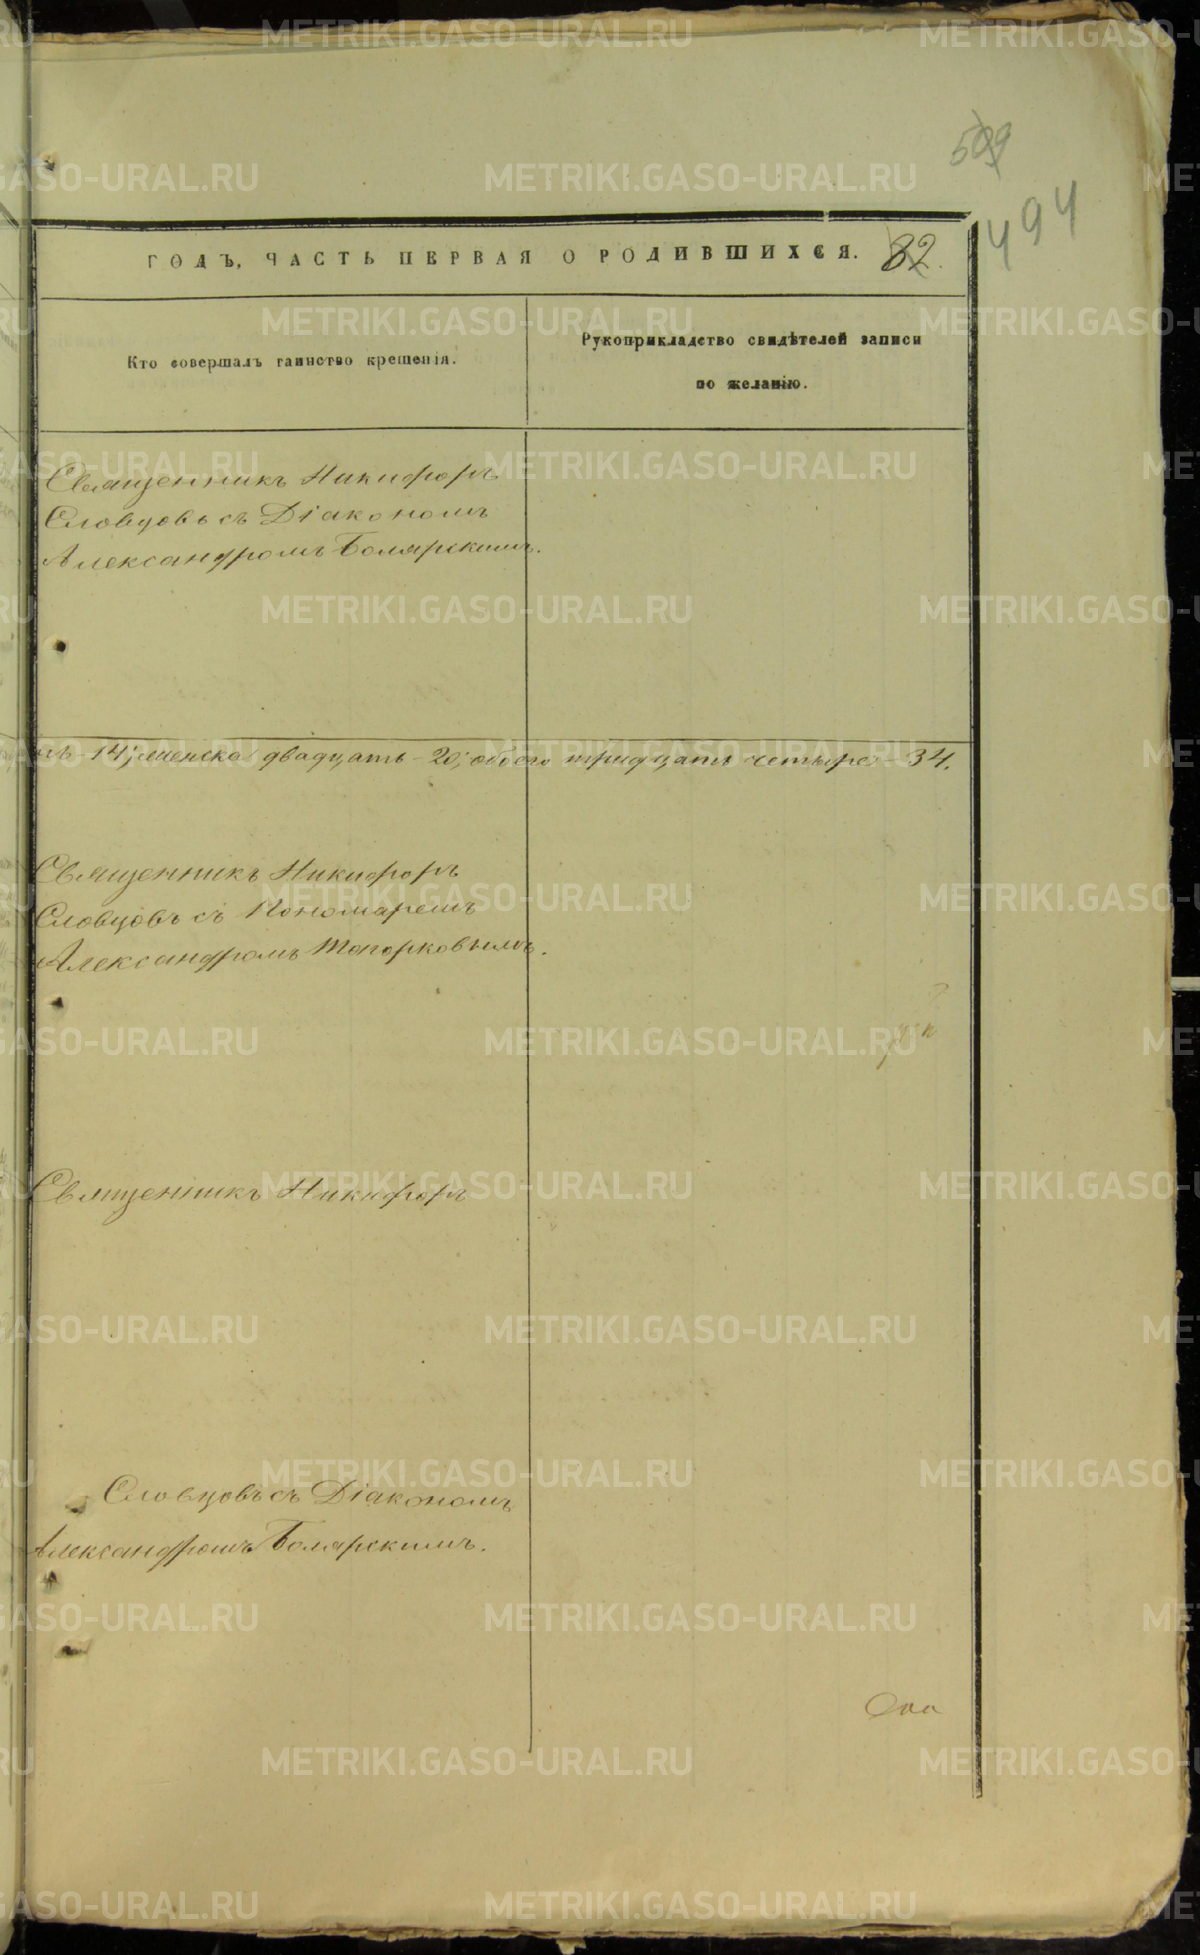 509
494
ГОДЪ, ЧАСТЬ ПЕРВАЯ О РОДИВШИХСЯ. 82.
Кто совершалъ таинство крещенія.
Рукоприкладство свидѣтелей записи
по желанію.
Священникъ Никифоръ
Словцовъ съ Діакономъ
Александромъ Болярскимъ.
14; женска двадцать - 20; обоего тридцать четыре - 34.
Священникъ Никифоръ
Словцовъ съ Пономаремъ
Александромъ Топорковымъ.
Священникъ Никифоръ
Словцовъ съ Діакономъ
Александромъ Болярскимъ.
METRIKI.GASO-URAL.RU